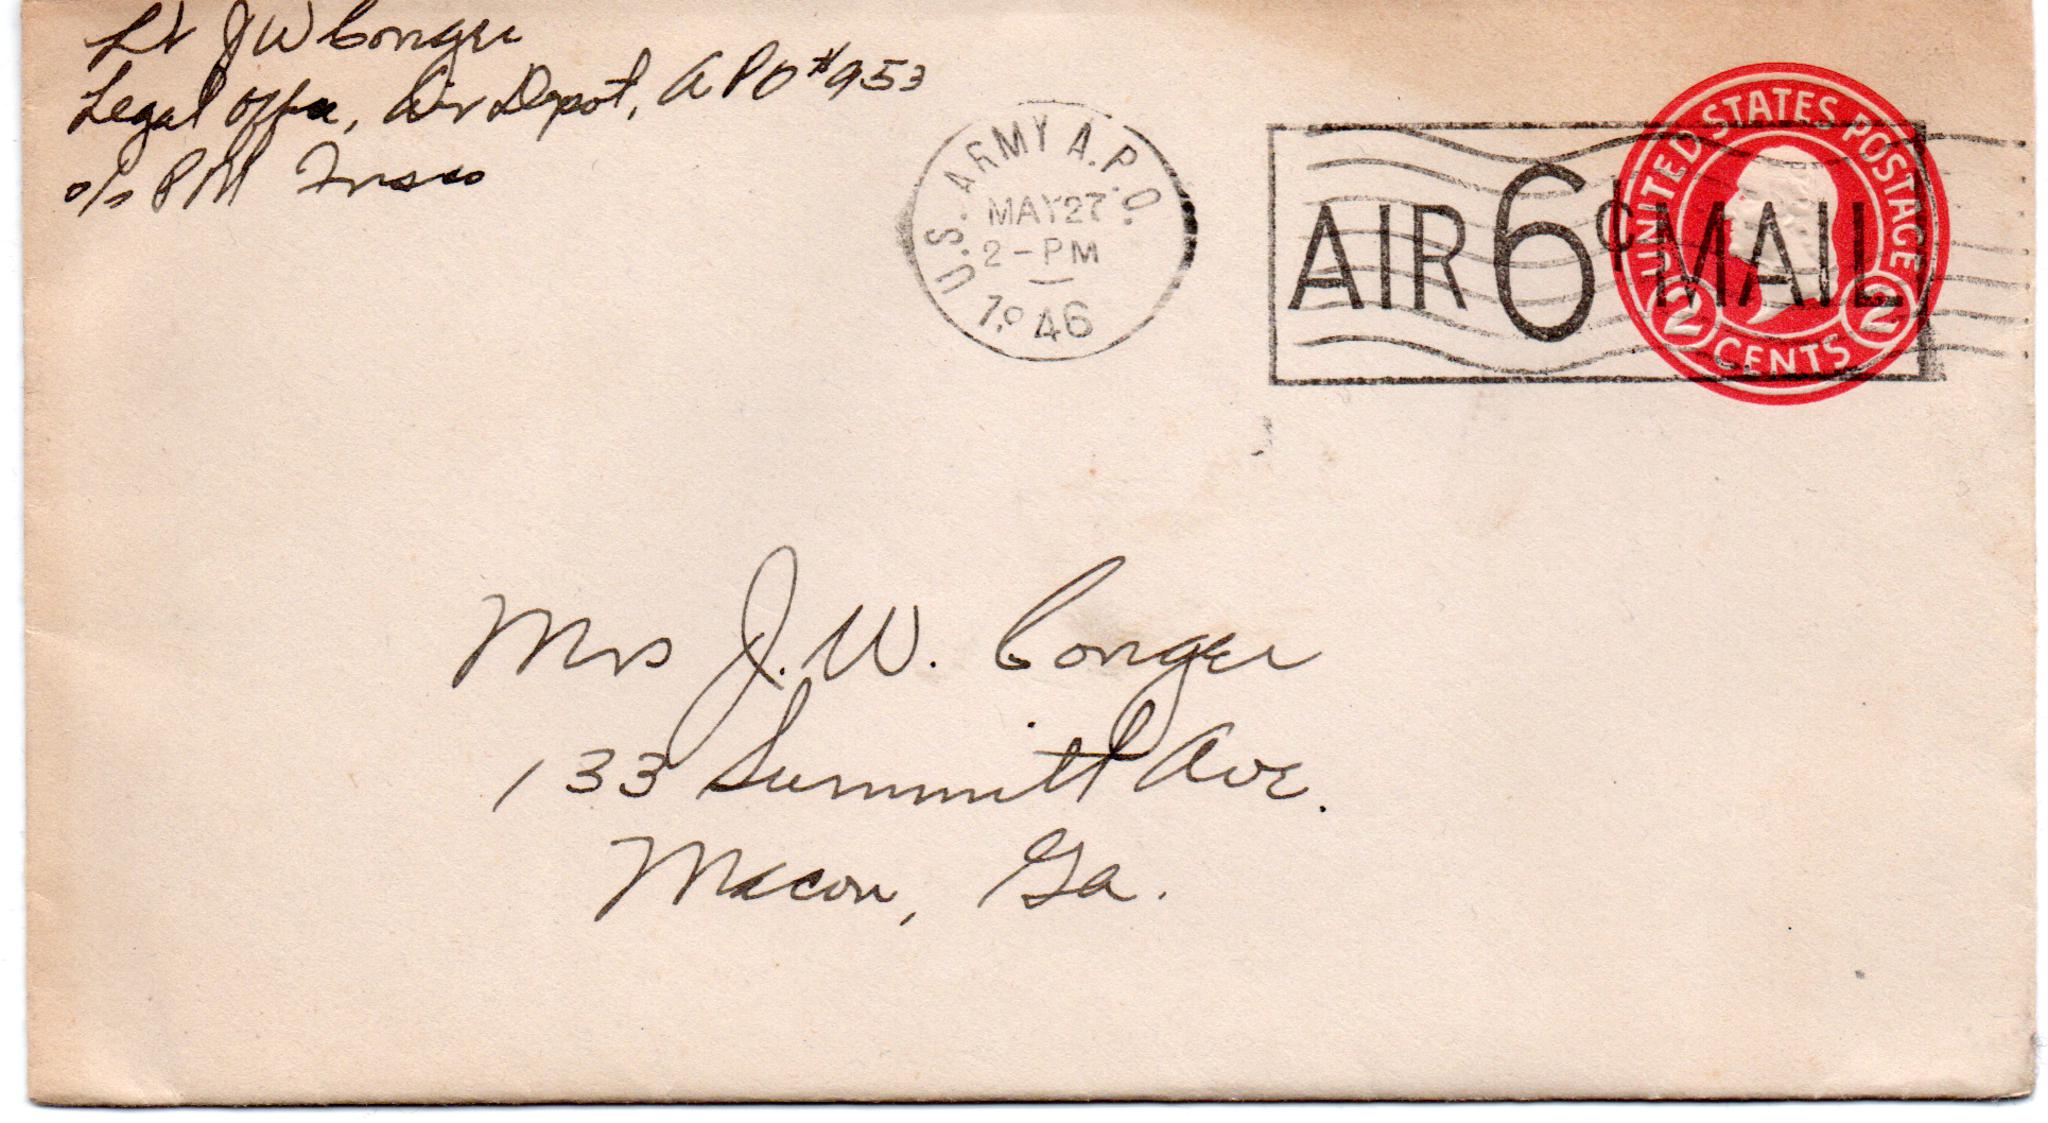 Lt J W Conger
Legal Office, Air Depot, APO #953
c/o PM Frisco
U.S. ARMY A.P.O.
MAY 27
2-PM
1946
AIR 6¢ MAIL
UNITED STATES POSTAGE
2 CENTS 2
Mrs J. W. Conger
133 Summitt Ave.
Macon, Ga.